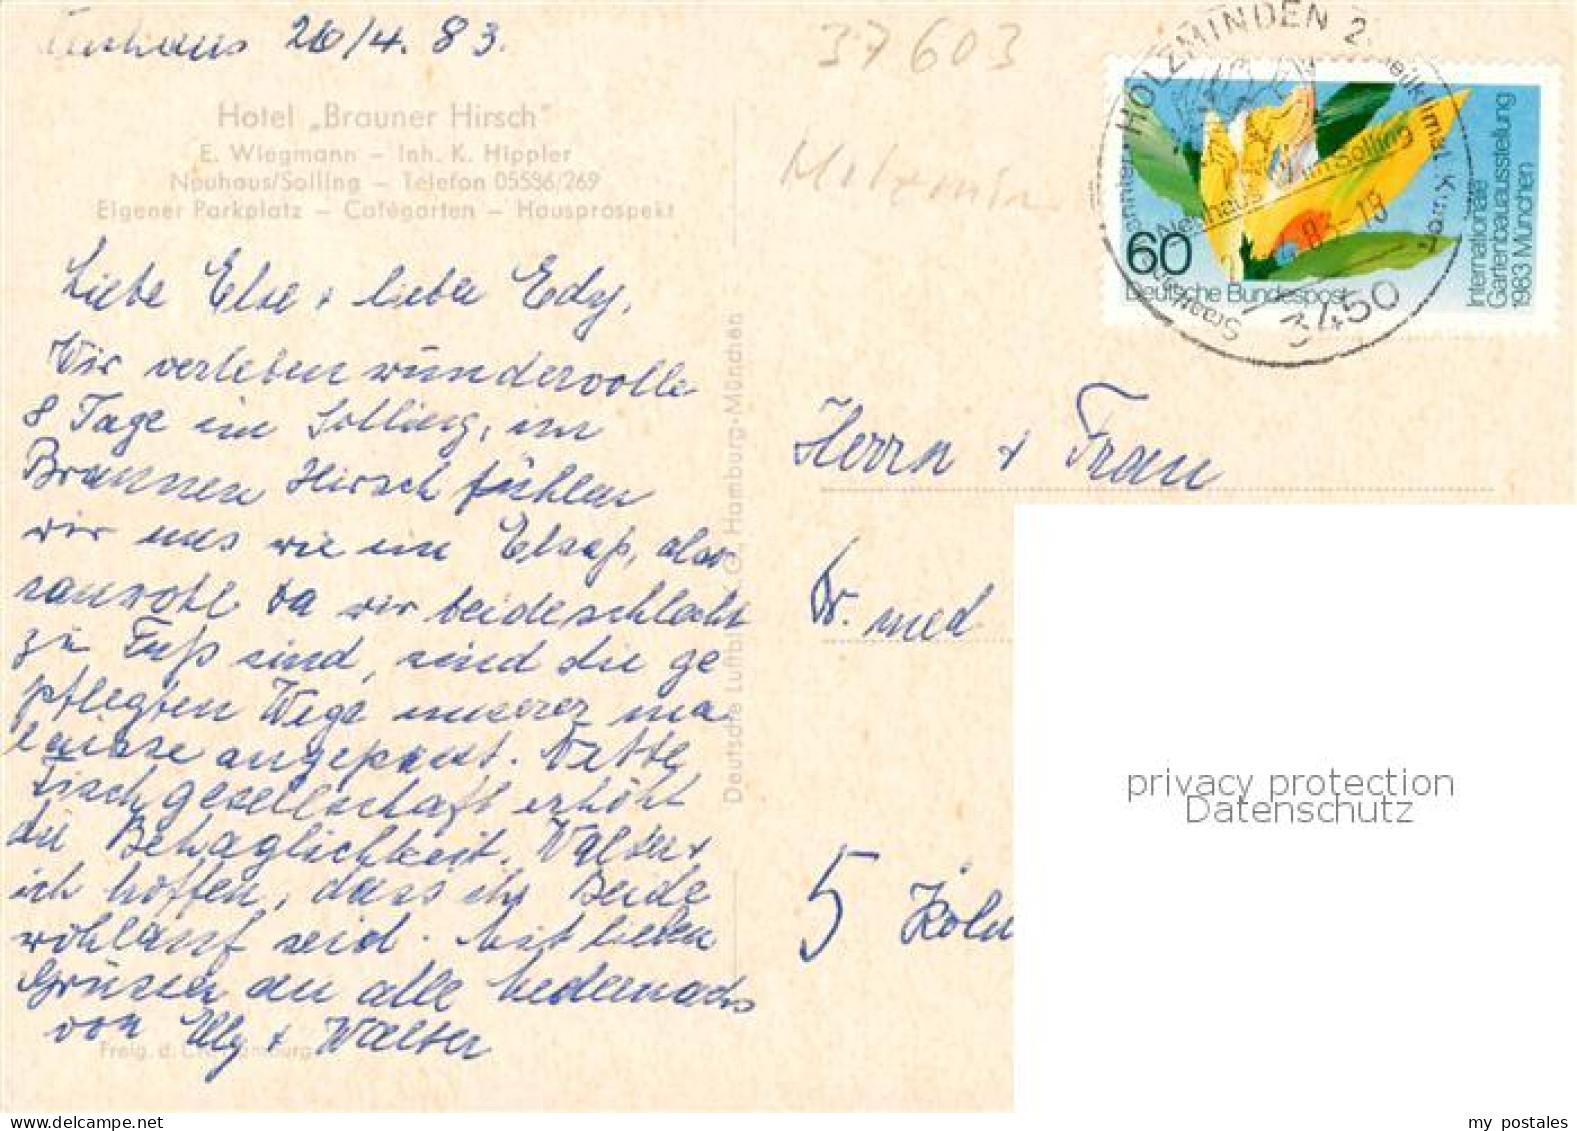 Neuhaus 26/4. 83.
37603
Hotel „Brauner Hirsch"
E. Wiegmann – Inh. K. Hippler
Neuhaus/Solling – Telefon 05536/269
Eigener Parkplatz – Cafégarten – Hausprospekt
Liebe Else + lieber Edy,
Wir verleben wundervolle
8 Tage im Solling, im
Braunen Hirsch fühlen
wir uns wie im Elsaß, aber
sanwohl da wir beide schlecht
zu Fuß sind, sind die ge
pflegten Wege unserer ma
laisse angepasst. Nette
Tischgesellschaft erhöht
die Behaglichkeit. Walter +
ich hoffen, dass ihr Beide
wohlauf seid. Mit lieben
Grüssen an alle
von Elly + Walter
Freig. d.
Deutsche Luftbild K.G., Hamburg-München
Holzmin
HOLZMINDEN 2
Neuhaus im Solling
83-18
3450
60
Deutsche Bundespost
Internationale
Gartenbauausstellung
1983 München
Herrn + Frau
Dr. med
5 Köln
privacy protection
Datenschutz
my postales